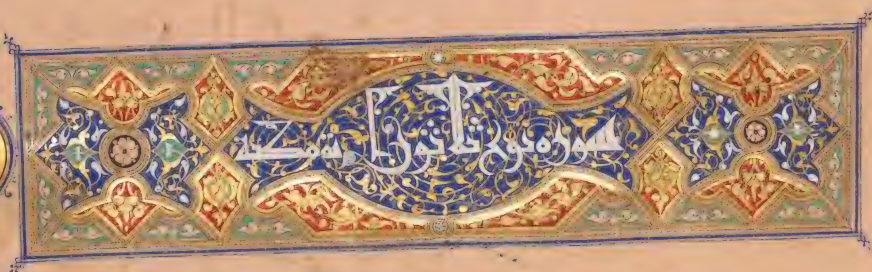 سورة نوح ثلاثون اية مكية